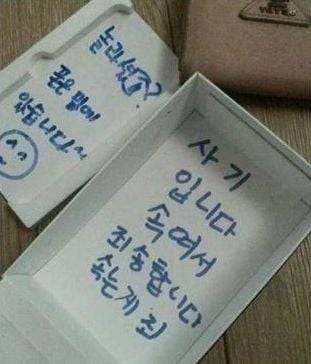 놀라셨죠?
밑에
있습니다~
사기
입니다
속여서
죄송합니다
속는게 죄